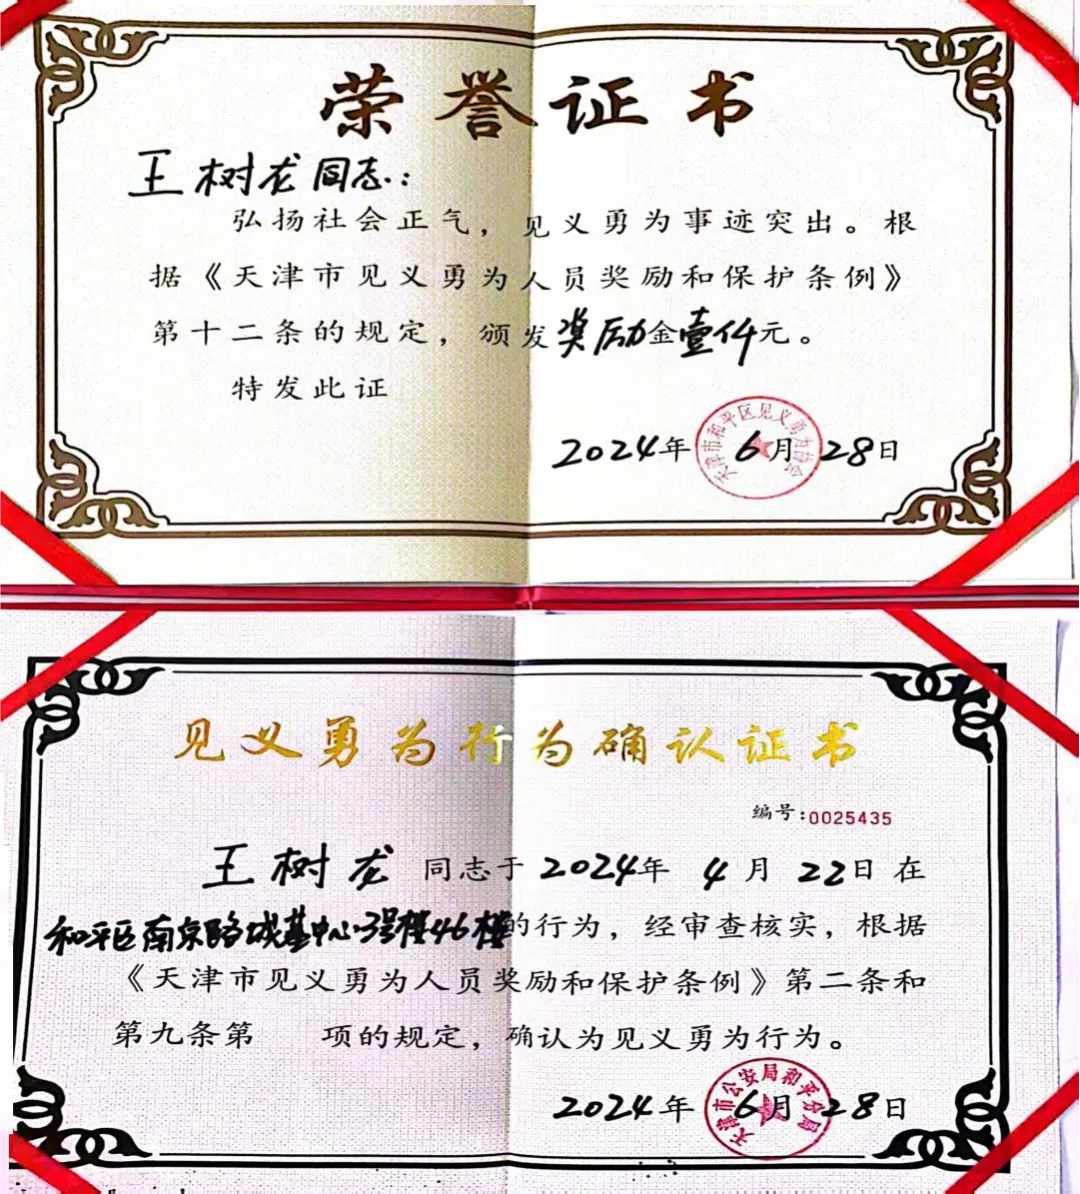 荣誉证书
王树龙同志：
弘扬社会正气，见义勇为事迹突出。根
据《天津市见义勇为人员奖励和保护条例》
第十二条的规定，颁发奖励金壹仟元。
特发此证
天津市和平区见义勇为协会
2024年6月28日
见义勇为行为确认证书
编号:0025435
王树龙同志于2024年4月22日在
和平区南京路城基中心3号楼46楼的行为，经审查核实，根据
《天津市见义勇为人员奖励和保护条例》第二条和
第九条第 项的规定，确认为见义勇为行为。
天津市公安局和平分局
2024年6月28日